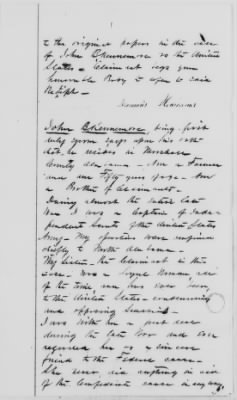 to the original papers in the case
of John Ekennemore vs the United
States - Claimant begs your
honorable Body to refer to said

John Ekennemore being first
duly sworn says upon his oath
that he resides in
County Alabama - Am a Farmer
and am Fifty years of age - Am
a Brother of Claimant.
During almost the entire late
War I was a Captain of Inde-
pendent Scouts of the United States
Army - My operations were confined
chiefly to North Alabama -
My Sister the Claimant in the
case - was a loyal Woman, all
of the time and has ever been
to the United States - condemning
and opposing Secession -
I was with her a great deal
during the late War and ever
regarded her as a sincere
friend to the Federal cause -
She never did anything in aid
of the Confederate cause in any way